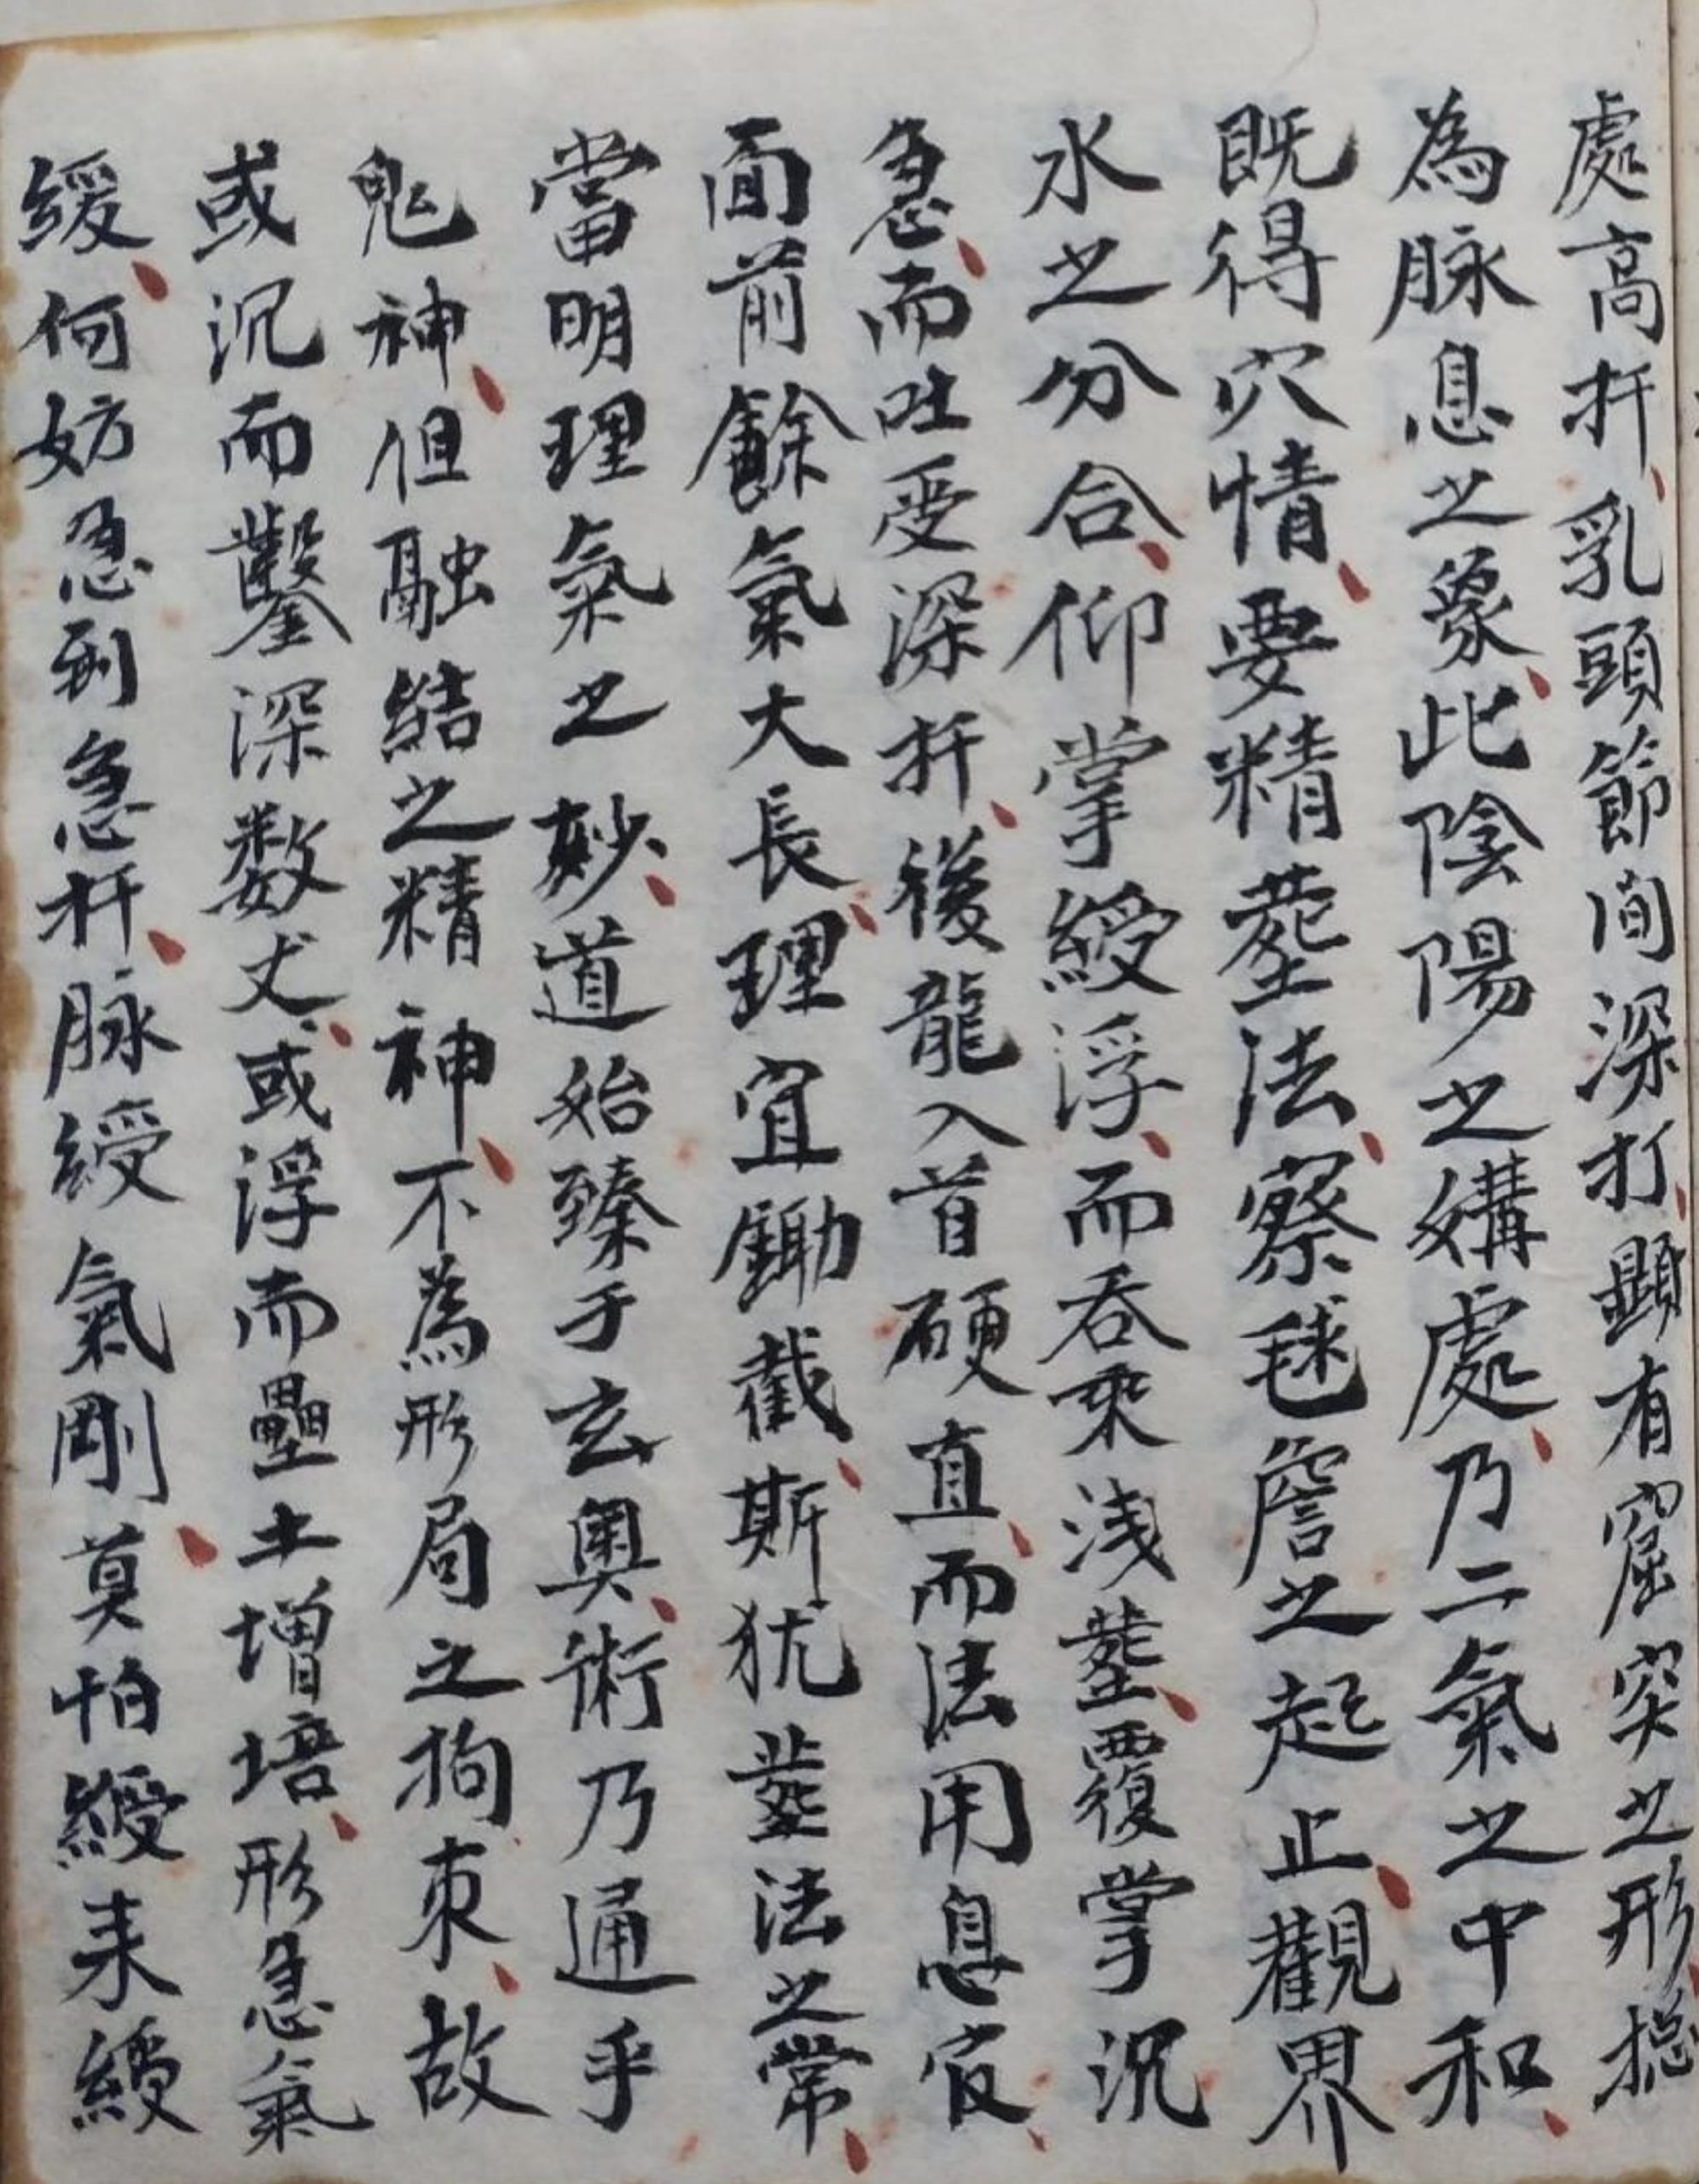 處高扦乳頭節间深打顕有窟突之形揔
為脉息之象此陰陽之媾處乃二氣之中和
既得穴情要精塟法察毬詹之起止觀界
水之分合仰掌綬浮而吞乘浅塟覆掌沉
急而吐受深扦後龍入首硬直而法用息官
面前餘氣大長理宜鋤截斯犹塟法之常
當明理氣之玅道始臻于玄奥術乃通乎
鬼神但融結之精神不為形局之拘束故
或沉而鑿深数丈或浮而壘土增培形急氣
緩何妨急到急扦脉綬氣剛莫怕綬来綬